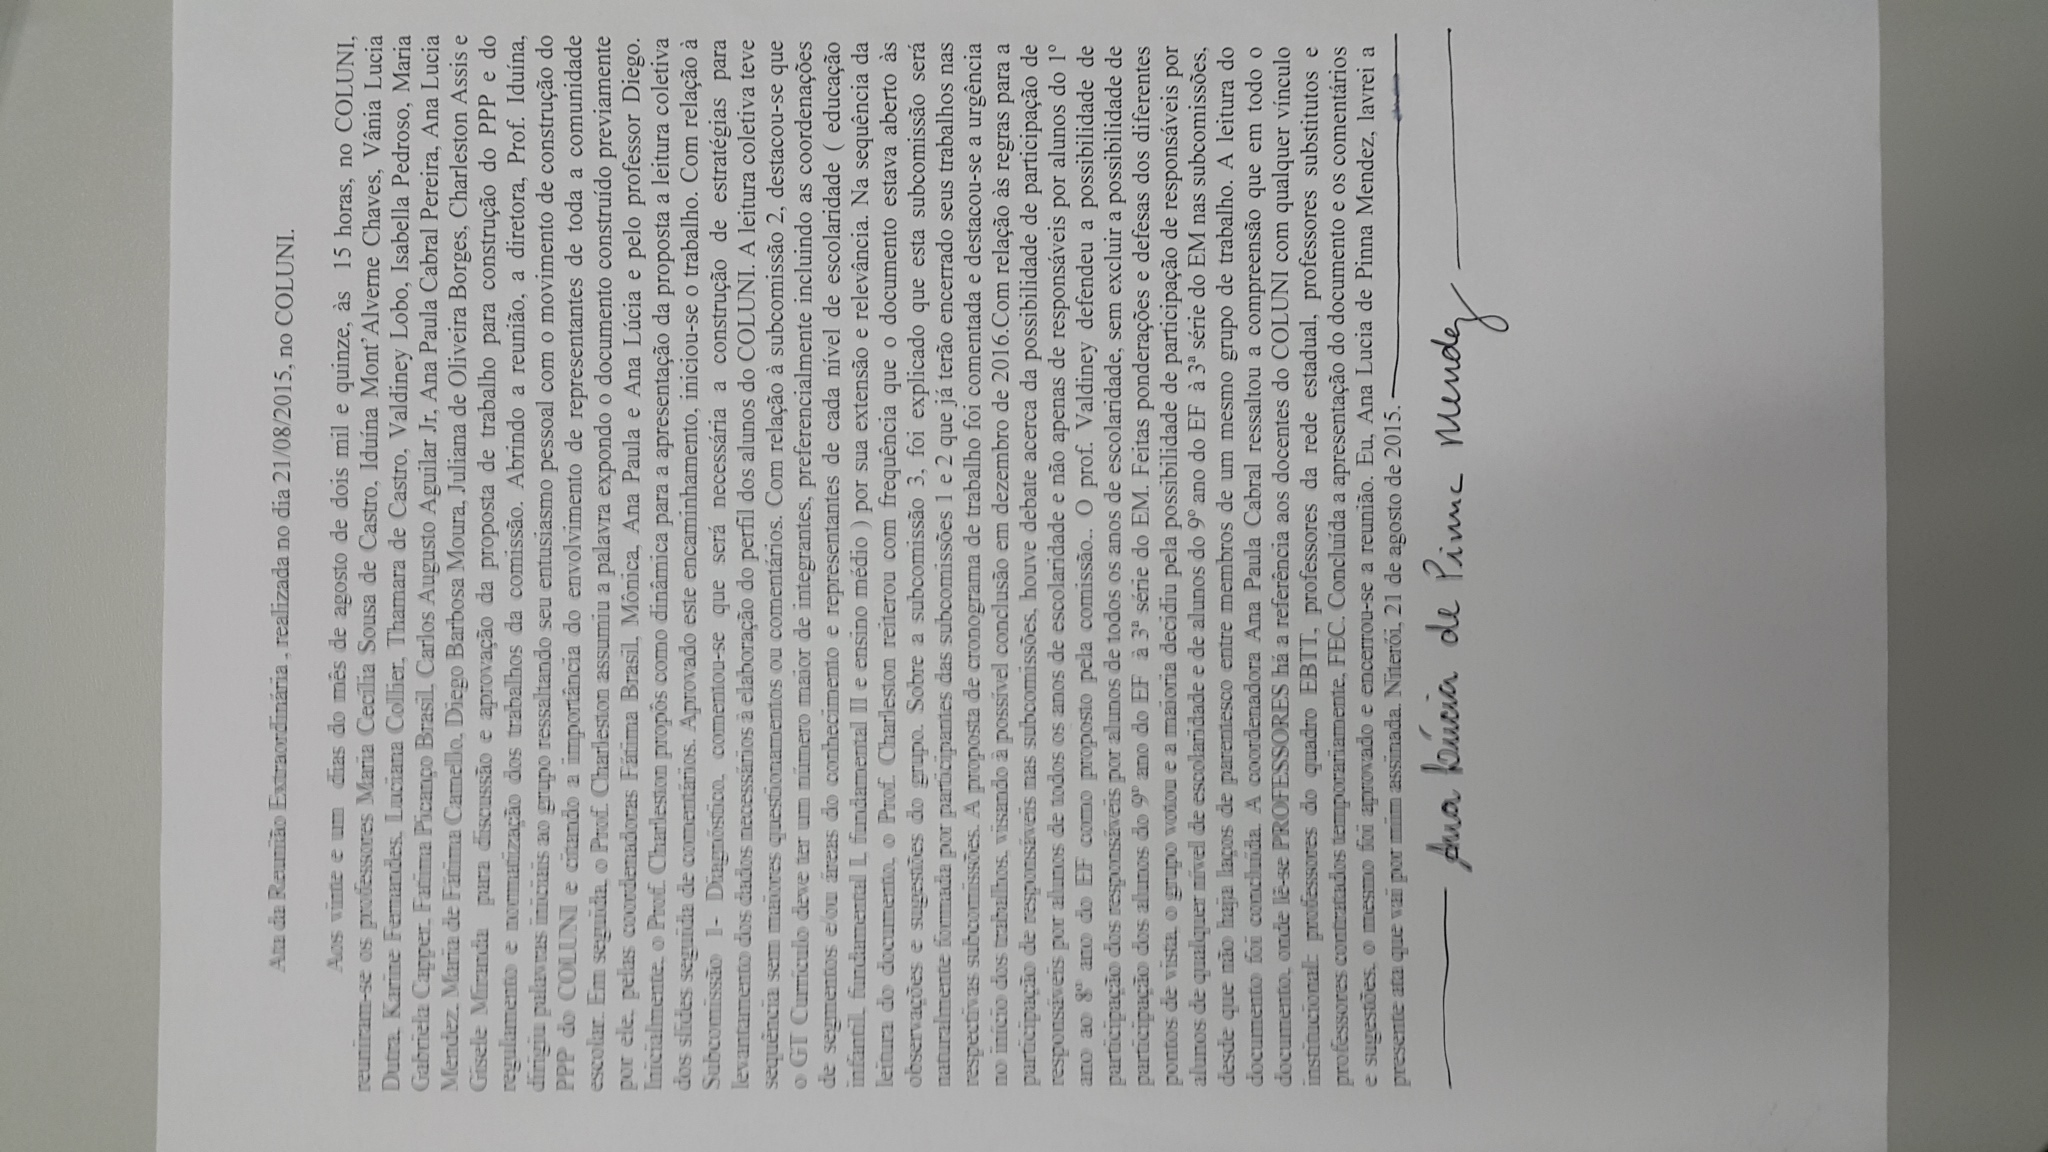 Ata da Reunião Extraordinária , realizada no dia 21/08/2015, no COLUNI.
Aos vinte e um dias do mês de agosto de dois mil e quinze, às 15 horas, no COLUNI,
reuniram-se os professores Maria Cecília Sousa de Castro, Iduína Mont'Alverne Chaves, Vânia Lucia
Dutra, Karine Fernandes, Luciana Collier, Thamara de Castro, Valdiney Lobo, Isabella Pedroso, Maria
Gabriela Capper, Fátima Picanço Brasil, Carlos Augusto Aguilar Jr, Ana Paula Cabral Pereira, Ana Lucia
Mendez, Maria de Fátima Camello, Diego Barbosa Moura, Juliana de Oliveira Borges, Charleston Assis e
Gisele Miranda para discussão e aprovação da proposta de trabalho para construção do PPP e do
regulamento e normatização dos trabalhos da comissão. Abrindo a reunião, a diretora, Prof. Iduína,
dirigiu palavras iniciais ao grupo ressaltando seu entusiasmo pessoal com o movimento de construção do
PPP do COLUNI e citando a importância do envolvimento de representantes de toda a comunidade
escolar. Em seguida, o Prof. Charleston assumiu a palavra expondo o documento construído previamente
por ele, pelas coordenadoras Fátima Brasil, Mônica, Ana Paula e Ana Lúcia e pelo professor Diego.
Inicialmente, o Prof. Charleston propôs como dinâmica para a apresentação da proposta a leitura coletiva
dos slides seguida de comentários. Aprovado este encaminhamento, iniciou-se o trabalho. Com relação à
Subcomissão 1- Diagnóstico, comentou-se que será necessária a construção de estratégias para
levantamento dos dados necessários à elaboração do perfil dos alunos do COLUNI. A leitura coletiva teve
sequência sem maiores questionamentos ou comentários. Com relação à subcomissão 2, destacou-se que
o GT Currículo deve ter um número maior de integrantes, preferencialmente incluindo as coordenações
de segmentos e/ou áreas do conhecimento e representantes de cada nível de escolaridade ( educação
infantil, fundamental I, fundamental II e ensino médio ) por sua extensão e relevância. Na sequência da
leitura do documento, o Prof. Charleston reiterou com frequência que o documento estava aberto às
observações e sugestões do grupo. Sobre a subcomissão 3, foi explicado que esta subcomissão será
naturalmente formada por participantes das subcomissões 1 e 2 que já terão encerrado seus trabalhos nas
respectivas subcomissões. A proposta de cronograma de trabalho foi comentada e destacou-se a urgência
no início dos trabalhos, visando à possível conclusão em dezembro de 2016.Com relação às regras para a
participação de responsáveis nas subcomissões, houve debate acerca da possibilidade de participação de
responsáveis por alunos de todos os anos de escolaridade e não apenas de responsáveis por alunos do 1º
ano ao 8º ano do EF como proposto pela comissão.. O prof. Valdiney defendeu a possibilidade de
participação dos responsáveis por alunos de todos os anos de escolaridade, sem excluir a possibilidade de
participação dos alunos do 9º ano do EF à 3ª série do EM. Feitas ponderações e defesas dos diferentes
pontos de vista, o grupo votou e a maioria decidiu pela possibilidade de participação de responsáveis por
alunos de qualquer nível de escolaridade e de alunos do 9º ano do EF à 3ª série do EM nas subcomissões,
desde que não haja laços de parentesco entre membros de um mesmo grupo de trabalho. A leitura do
documento foi concluída. A coordenadora Ana Paula Cabral ressaltou a compreensão que em todo o
documento, onde lê-se PROFESSORES há a referência aos docentes do COLUNI com qualquer vínculo
institucional: professores do quadro EBTT, professores da rede estadual, professores substitutos e
professores contratados temporariamente, FEC. Concluída a apresentação do documento e os comentários
e sugestões, o mesmo foi aprovado e encerrou-se a reunião. Eu, Ana Lucia de Pinna Mendez, lavrei a
presente ata que vai por mim assinada. Niterói, 21 de agosto de 2015.
Ana Lúcia de Pinna Mendez